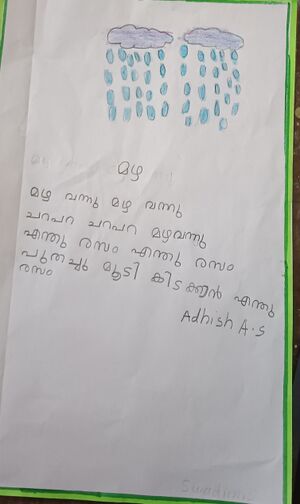 മഴ
മഴ വന്നു മഴ വന്നു
ചറപറ ചറപറ മഴവന്നു
എന്തു രസം എന്തു രസം
പുതച്ചു മൂടി കിടക്കാൻ എന്തു
രസം
Adhish A.S